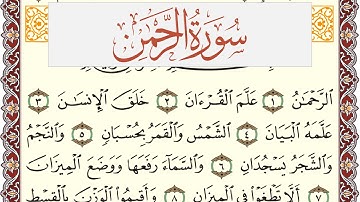 سُورَةُ الرَّحْمَٰن
الرَّحْمَٰنُ ١ عَلَّمَ الْقُرْءَانَ ٢ خَلَقَ الْإِنسَٰنَ ٣
عَلَّمَهُ الْبَيَانَ ٤ الشَّمْسُ وَالْقَمَرُ بِحُسْبَانٍ ٥ وَالنَّجْمُ
وَالشَّجَرُ يَسْجُدَانِ ٦ وَالسَّمَآءَ رَفَعَهَا وَوَضَعَ الْمِيزَانَ
٧ أَلَّا تَطْغَوْا۟ فِى الْمِيزَانِ ٨ وَأَقِيمُوا۟ الْوَزْنَ بِالْقِسْطِ